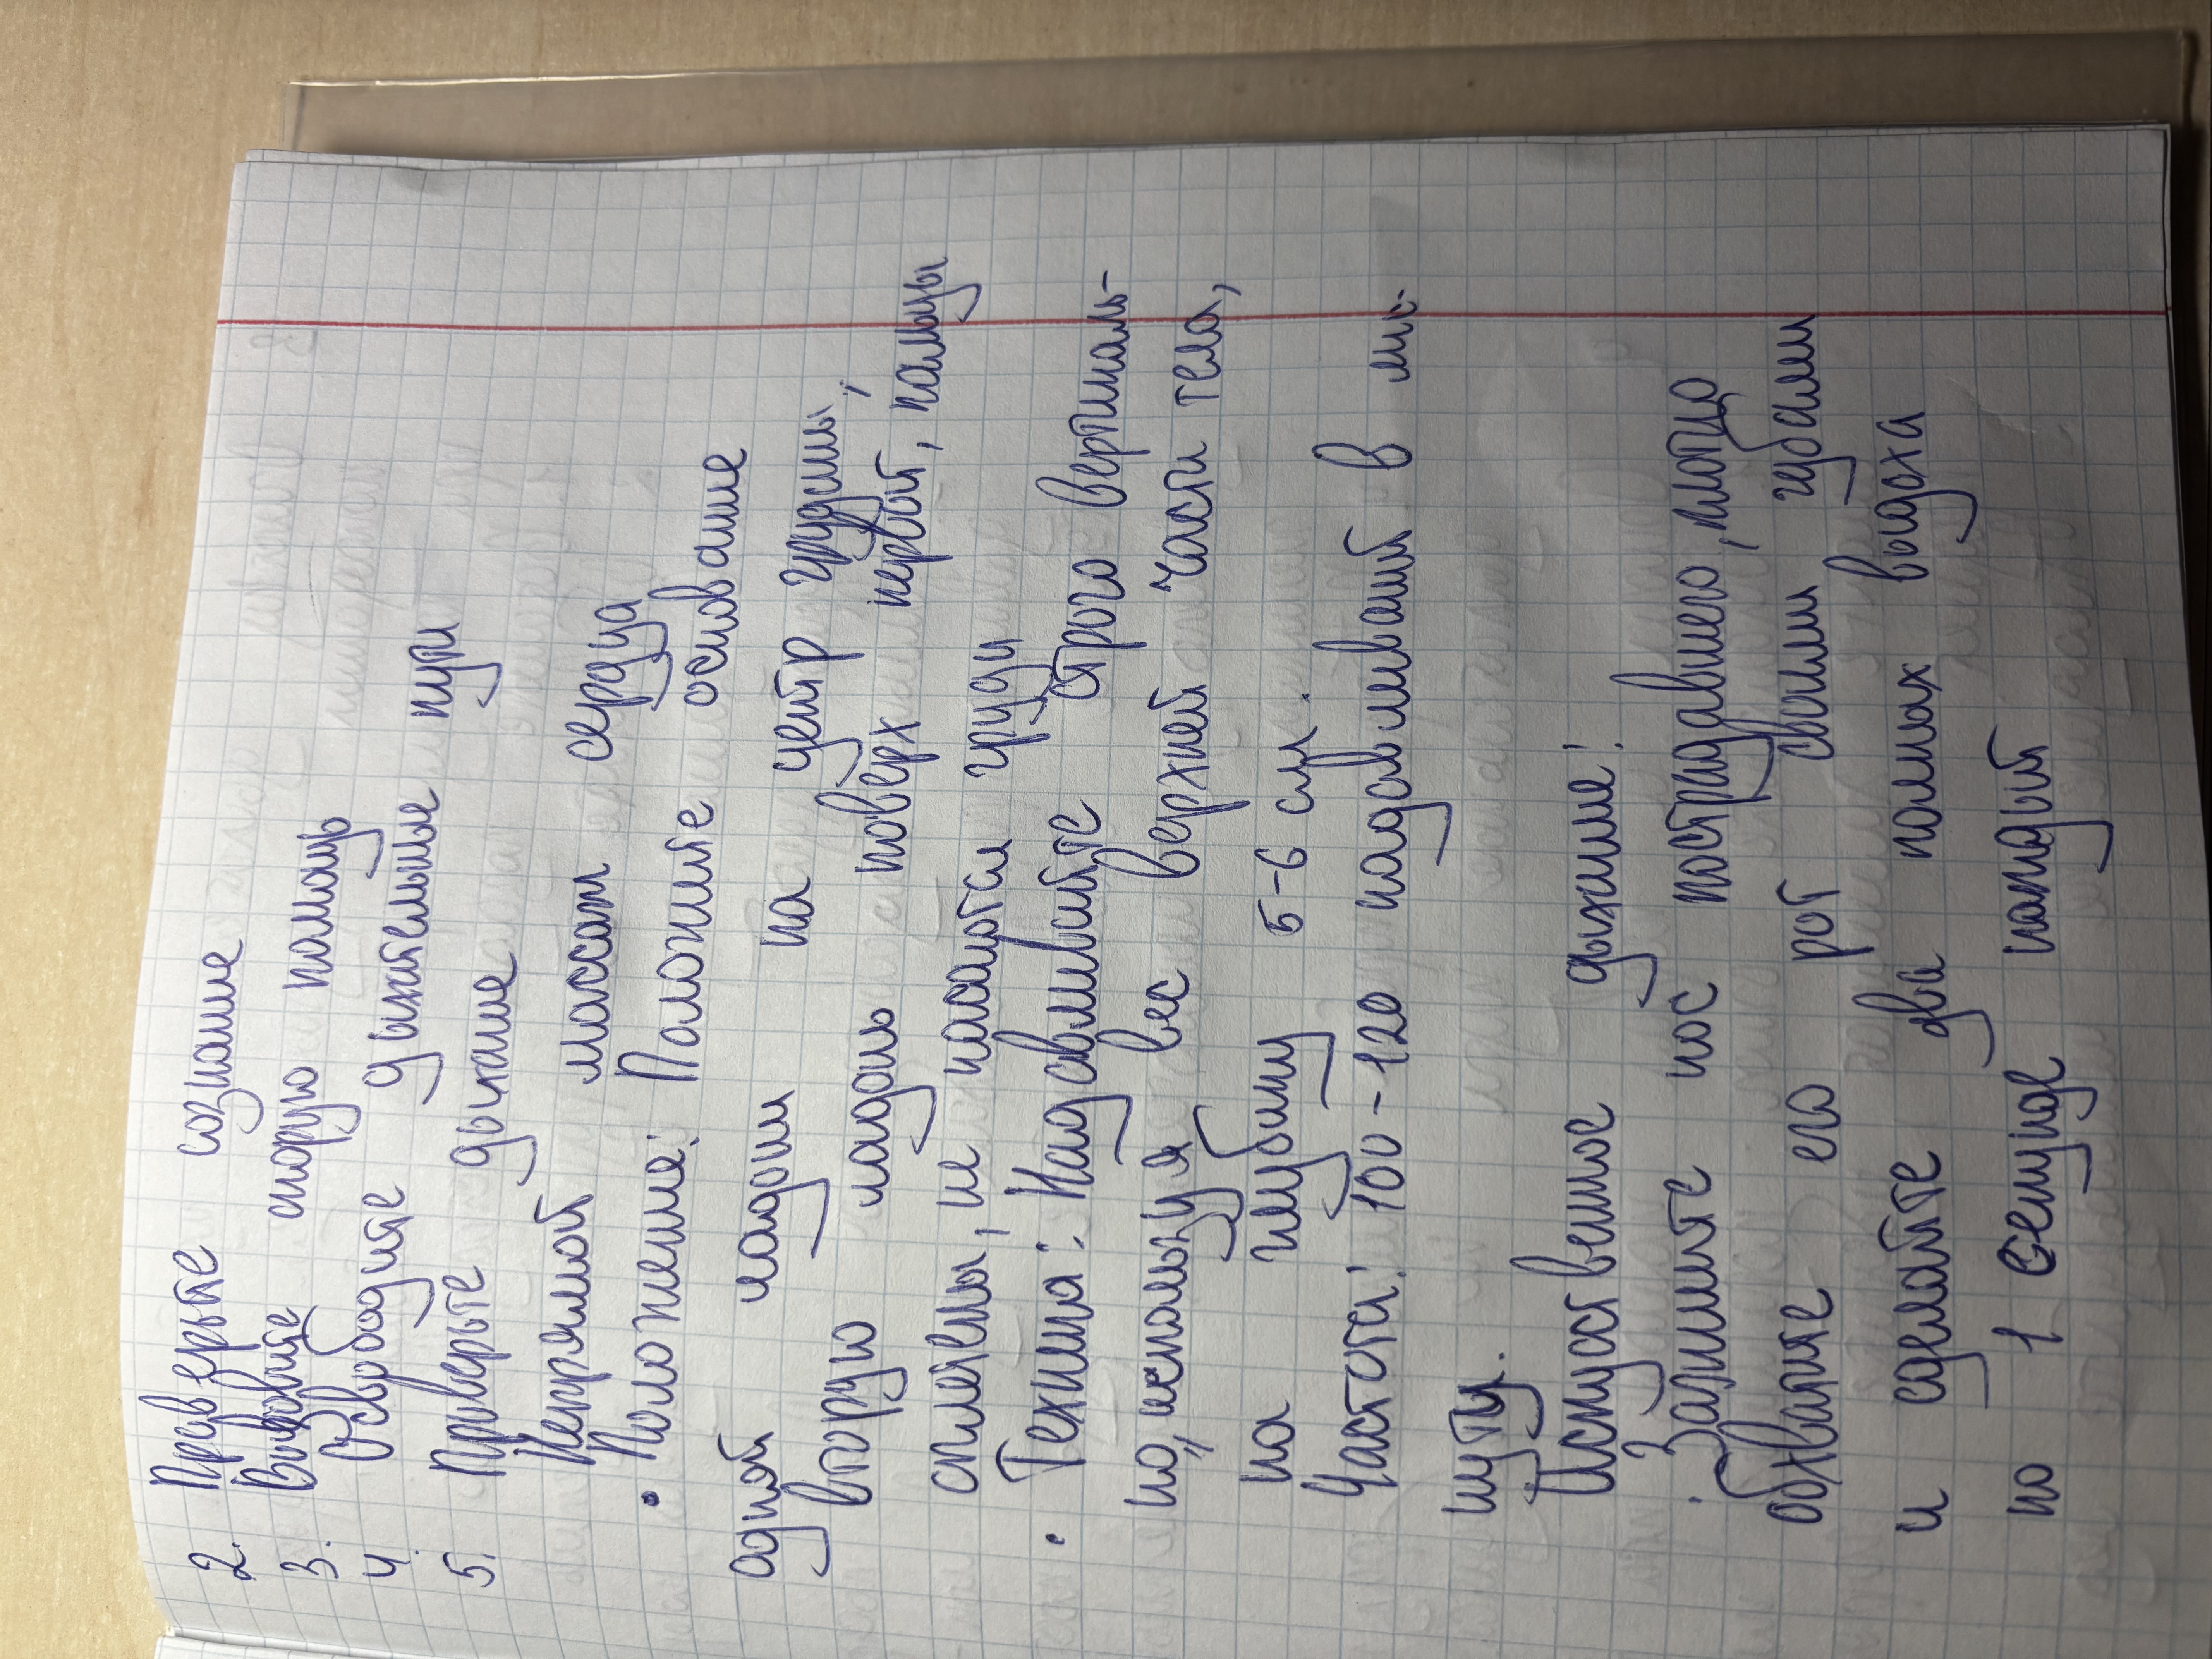 2. Проверьте сознание
3. Вызовите скорую помощь
4. Освободите дыхательные пути
5. Проверьте дыхание
Непрямой массаж сердца
• Положение: Положите основание
одной ладони на центр грудины,
вторую ладонь поверх первой, пальцы
сплетены, не касаются груди
• Техника: Надавливайте строго вертикаль-
но, используя вес верхней части тела,
на глубину 5-6 см.
Частота: 100-120 надавливаний в ми-
нуту.
Искусственное дыхание:
• Зажмите нос пострадавшего, плотно
обхватите его рот своими губами
и сделайте два полных выдоха
по 1 секунде каждый